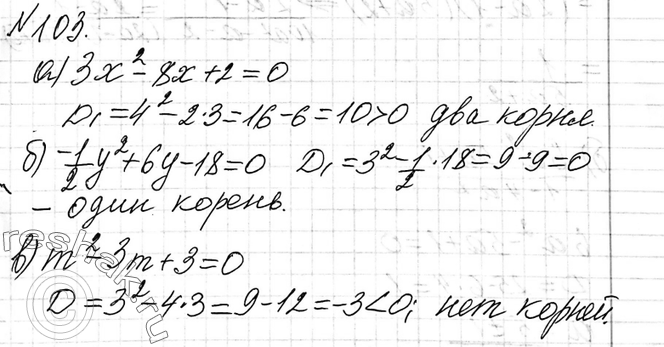 №103.
а) 3x² - 8x + 2 = 0
D₁ = 4² - 2·3 = 16 - 6 = 10 > 0 два корня.
б) -1/2 y² + 6y - 18 = 0 D₁ = 3² - 1/2 · 18 = 9 - 9 = 0
- один корень.
в) m² - 3m + 3 = 0
D = 3² - 4·3 = 9 - 12 = -3 < 0; нет корней.
reshak.ru
©